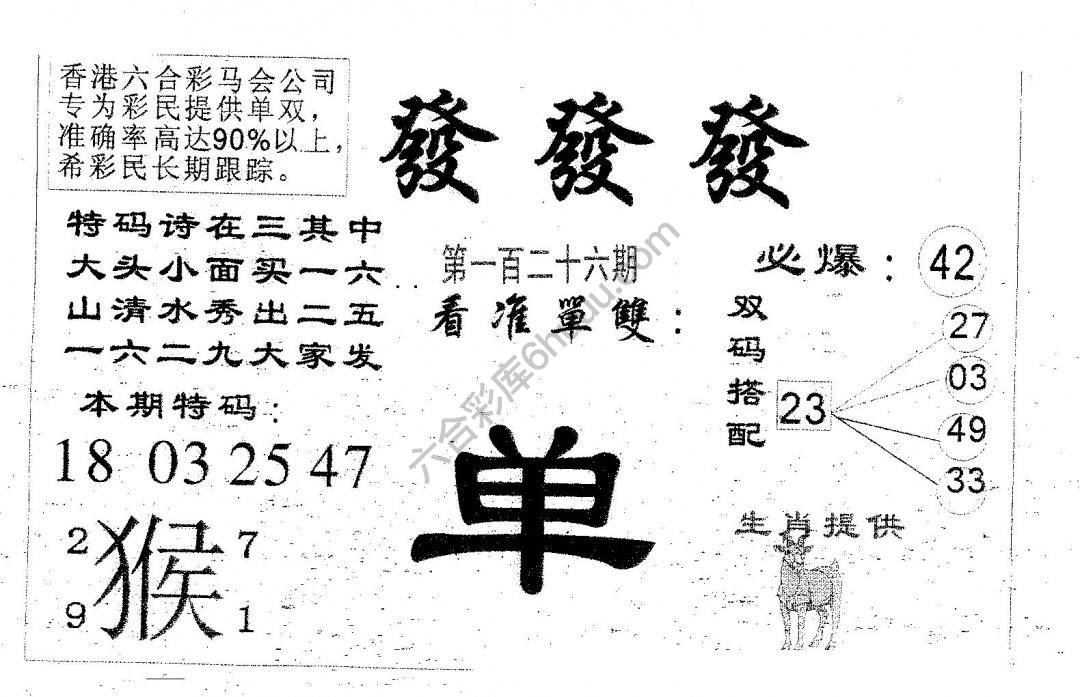 香港六合彩马会公司
专为彩民提供单双，
准确率高达90%以上，
希彩民长期跟踪。
發 發 發
特码诗在三其中
大头小面买一六
山清水秀出二五
一六二九大家发
本期特码：
18 03 25 47
2 7
猴
9 1
第一百二十六期
看准單雙：
单
必爆：42
双码搭配
23
27
03
49
33
生肖提供
六合彩库6hzu.com